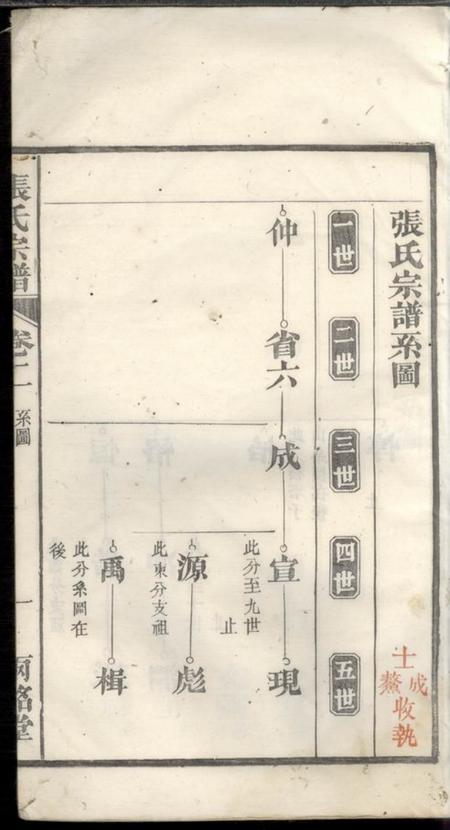 張氏宗譜系圖
士成
鰲收執
一世
二世
三世
四世
五世
仲
省六
成
宣
現
此分至九世
止
源
彪
此東分支祖
禹
楫
此分系圖在
後
張氏宗譜
卷二
系圖
一